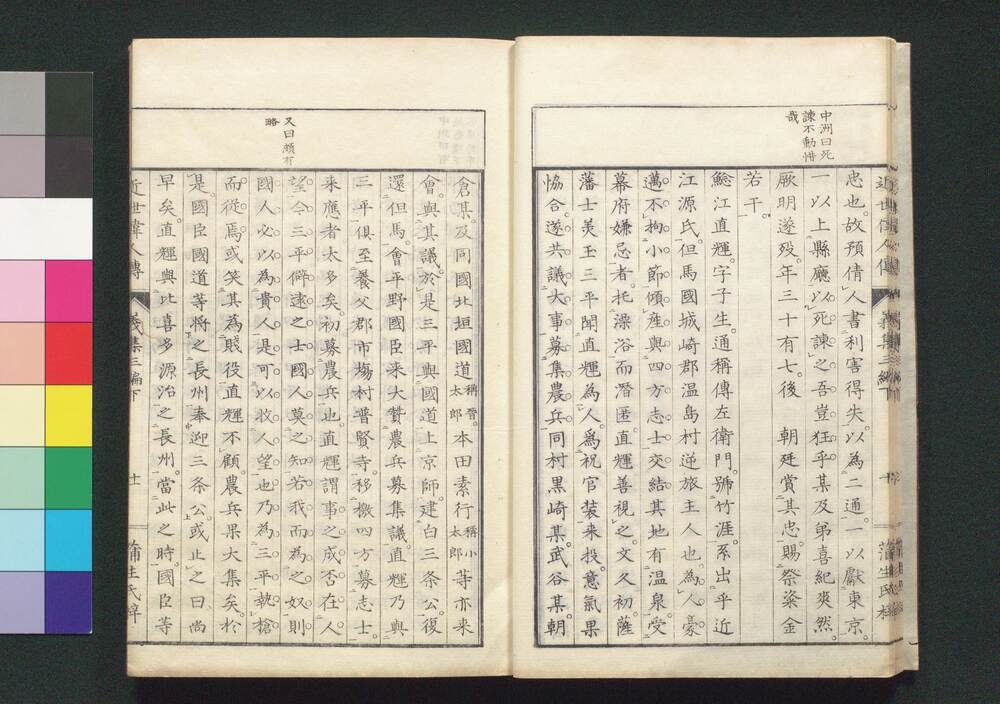 中洲曰死
諫不動惜
哉
忠也故預倩人書利害得失以為二通一以獻東京
一以上縣廳以死諫之吾豈狂乎某及弟喜紀爽然
厥明遂歿年三十有七後 朝廷賞其忠賜祭粢金
若干
鯰江直輝字子生通稱傳左衛門號竹涯系出乎近
江源氏但馬國城崎郡温島村逆旅主人也為人豪
邁不拘小節傾產與四方志士交結其地有温泉受
幕府嫌忌者托澡浴而潛匿直輝善視之文久初薩
藩士美玉三平聞直輝為人為祝官装来投意氣果
恊合遂共議大事募集農兵同村黒崎某武谷某朝
又曰頗有
略
倉某及同國北垣國道稱晋太郎本田素行稱小太郎等亦来
會與其議於是三平與國道上京師建白三条公復
還但馬會平野國臣来大賛農兵募集議直輝乃與
三平俱至養父郡市場村普賢寺移檄四方募志士
来應者太多矣初募農兵也直輝謂事之成否在人
望今三平僻遠之士國人莫之知若我而為之奴則
國人必以為貴人是可以收人望也乃為三平執槍
而從焉或笑其為賎役直輝不顧農兵果大集矣於
是國臣國道等將之長州奉迎三条公或止之曰尚
早矣直輝與比喜多源治之長州當此之時國臣等
近世偉人傳
義集三編下
十一
蒲生氏梓